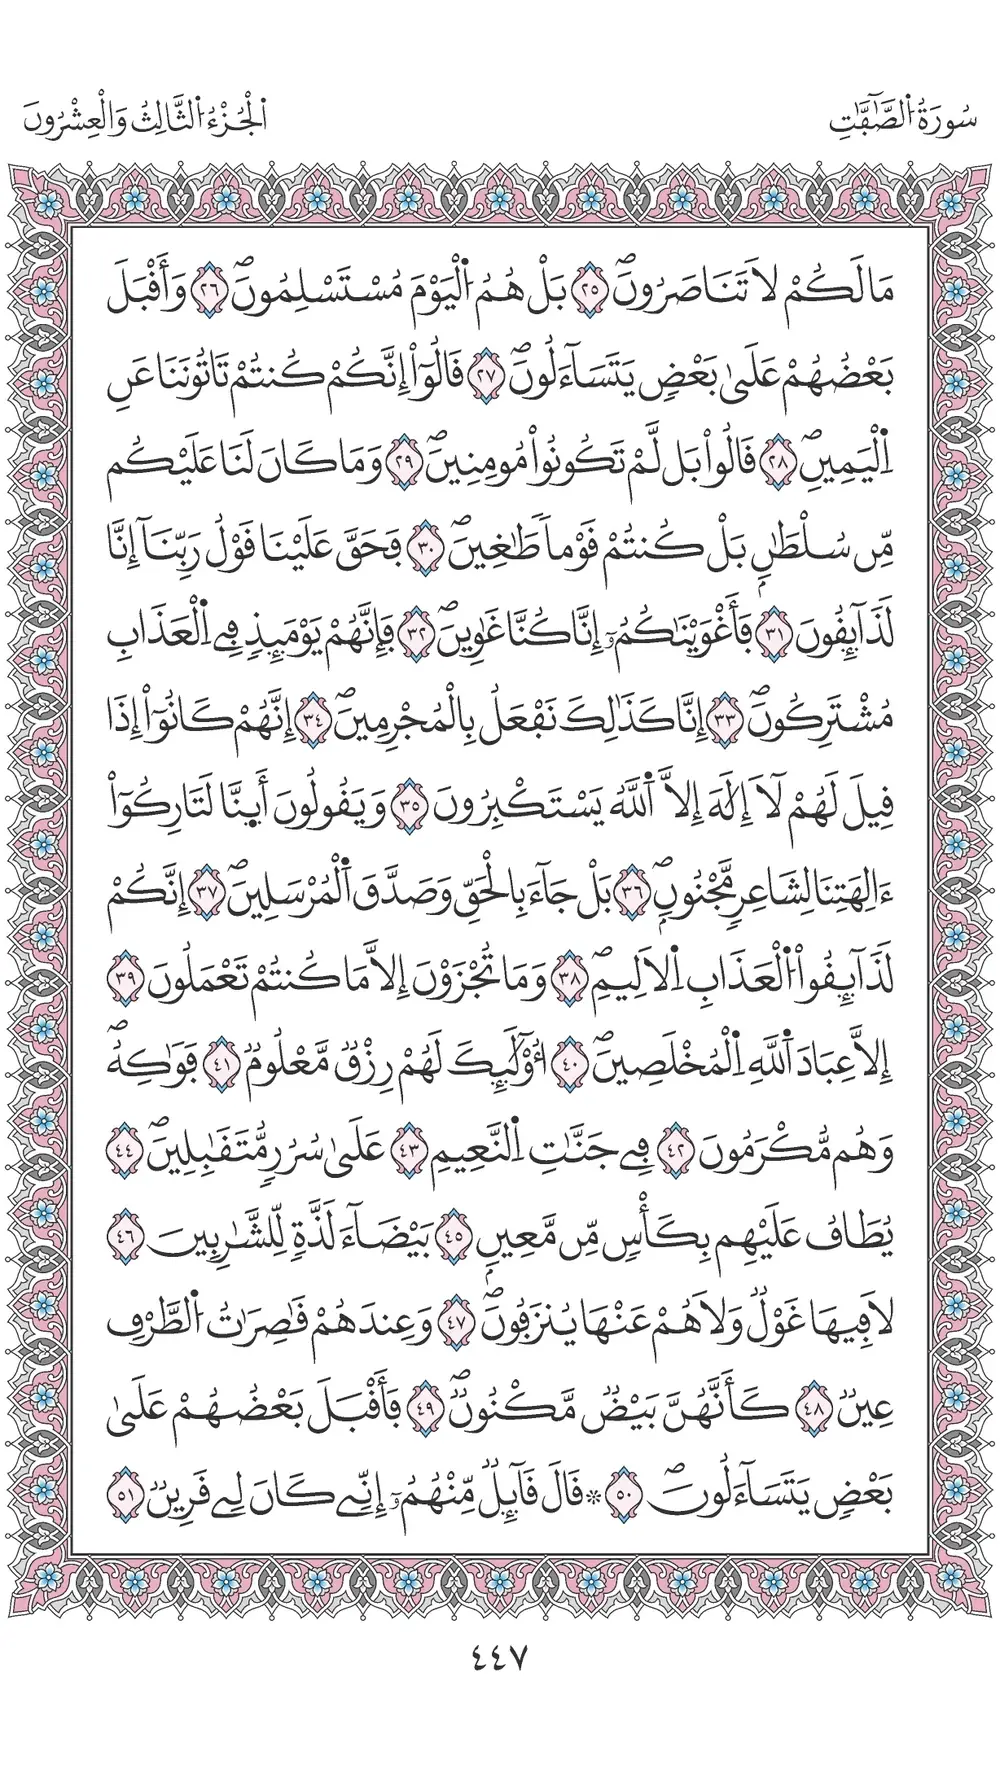 سُورَةُ اُ۬لصَّٰٓفَّٰتِ
اُ۬لْجُزْءُ اُ۬لثَّالِثُ وَالْعِشْرُونَ
مَالَكُمْ لَا تَنَاصَرُونَۖ ٢٥ بَلْ هُمُ اُ۬لْيَوْمَ مُسْتَسْلِمُونَۖ ٢٦ وَأَقْبَلَ
بَعْضُهُمْ عَلَىٰ بَعْضٖ يَتَسَآءَلُونَۖ ٢٧ قَالُوٓاْ إِنَّكُمْ كُنتُمْ تَاتُونَنَا عَنِ
اِ۬لْيَمِينِۖ ٢٨ قَالُواْ بَل لَّمْ تَكُونُواْ مُومِنِينَۖ ٢٩ وَمَا كَانَ لَنَا عَلَيْكُم
مِّن سُلْطَٰنِۢ بَلْ كُنتُمْ قَوْماٗ طَٰغِينَۖ ٣٠ فَحَقَّ عَلَيْنَا قَوْلُ رَبِّنَآ إِنَّا
لَذَآئِقُونَ ٣١ فَأَغْوَيْنَٰكُمُۥٓ إِنَّا كُنَّا غَٰوِينَۖ ٣٢ فَإِنَّهُمْ يَوْمَئِذٖ فِے اِ۬لْعَذَابِ
مُشْتَرِكُونَۖ ٣٣ إِنَّا كَذَٰلِكَ نَفْعَلُ بِالْمُجْرِمِينَۖ ٣٤ إِنَّهُمْ كَانُوٓاْ إِذَا
قِيلَ لَهُمْ لَآ إِلَٰهَ إِلَّا اَ۬للَّهُ يَسْتَكْبِرُونَ ٣٥ وَيَقُولُونَ أَئِنَّا لَتَارِكُوٓاْ
ءَالِهَتِنَا لِشَاعِرٖ مَّجْنُونِۢۖ ٣٦ بَلْ جَآءَ بِالْحَقِّ وَصَدَّقَ اَ۬لْمُرْسَلِينَۖ ٣٧ إِنَّكُمْ
لَذَآئِقُواْ اُ۬لْعَذَابِ اِ۬لَالِيمِۖ ٣٨ وَمَا تُجْزَوْنَ إِلَّا مَا كُنتُمْ تَعْمَلُونَ ٣٩
إِلَّا عِبَادَ اَ۬للَّهِ اِ۬لْمُخْلَصِينَۖ ٤٠ أُوْلَٰٓئِكَ لَهُمْ رِزْقٞ مَّعْلُومٞ ٤١ فَوَٰكِهُۖ
وَهُم مُّكْرَمُونَ ٤٢ فِے جَنَّٰتِ اِ۬لنَّعِيمِ ٤٣ عَلَىٰ سُرُرٖ مُّتَقَٰبِلِينَۖ ٤٤
يُطَافُ عَلَيْهِم بِكَأْسٖ مِّن مَّعِينِۢ ٤٥ بَيْضَآءَ لَذَّةٖ لِّلشَّٰرِبِينَ ٤٦
لَا فِيهَا غَوْلٞ وَلَا هُمْ عَنْهَا يُنزَفُونَۖ ٤٧ وَعِندَهُمْ قَٰصِرَٰتُ اُ۬لطَّرْفِ
عِينٞ ٤٨ كَأَنَّهُنَّ بَيْضٞ مَّكْنُونٞۖ ٤٩ فَأَقْبَلَ بَعْضُهُمْ عَلَىٰ
بَعْضٖ يَتَسَآءَلُونَۖ ٥٠ ۞ قَالَ قَآئِلٞ مِّنْهُمُۥٓ إِنِّے كَانَ لِے قَرِينٞ ٥١
٤٤٧